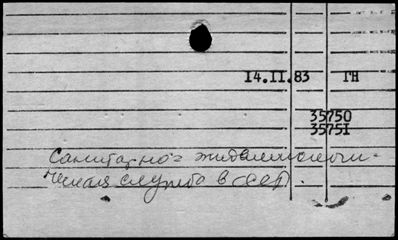 14.II.83 ГН
35750
35751
Санитарно-эпидемиологи-
ческая служба в СССР.